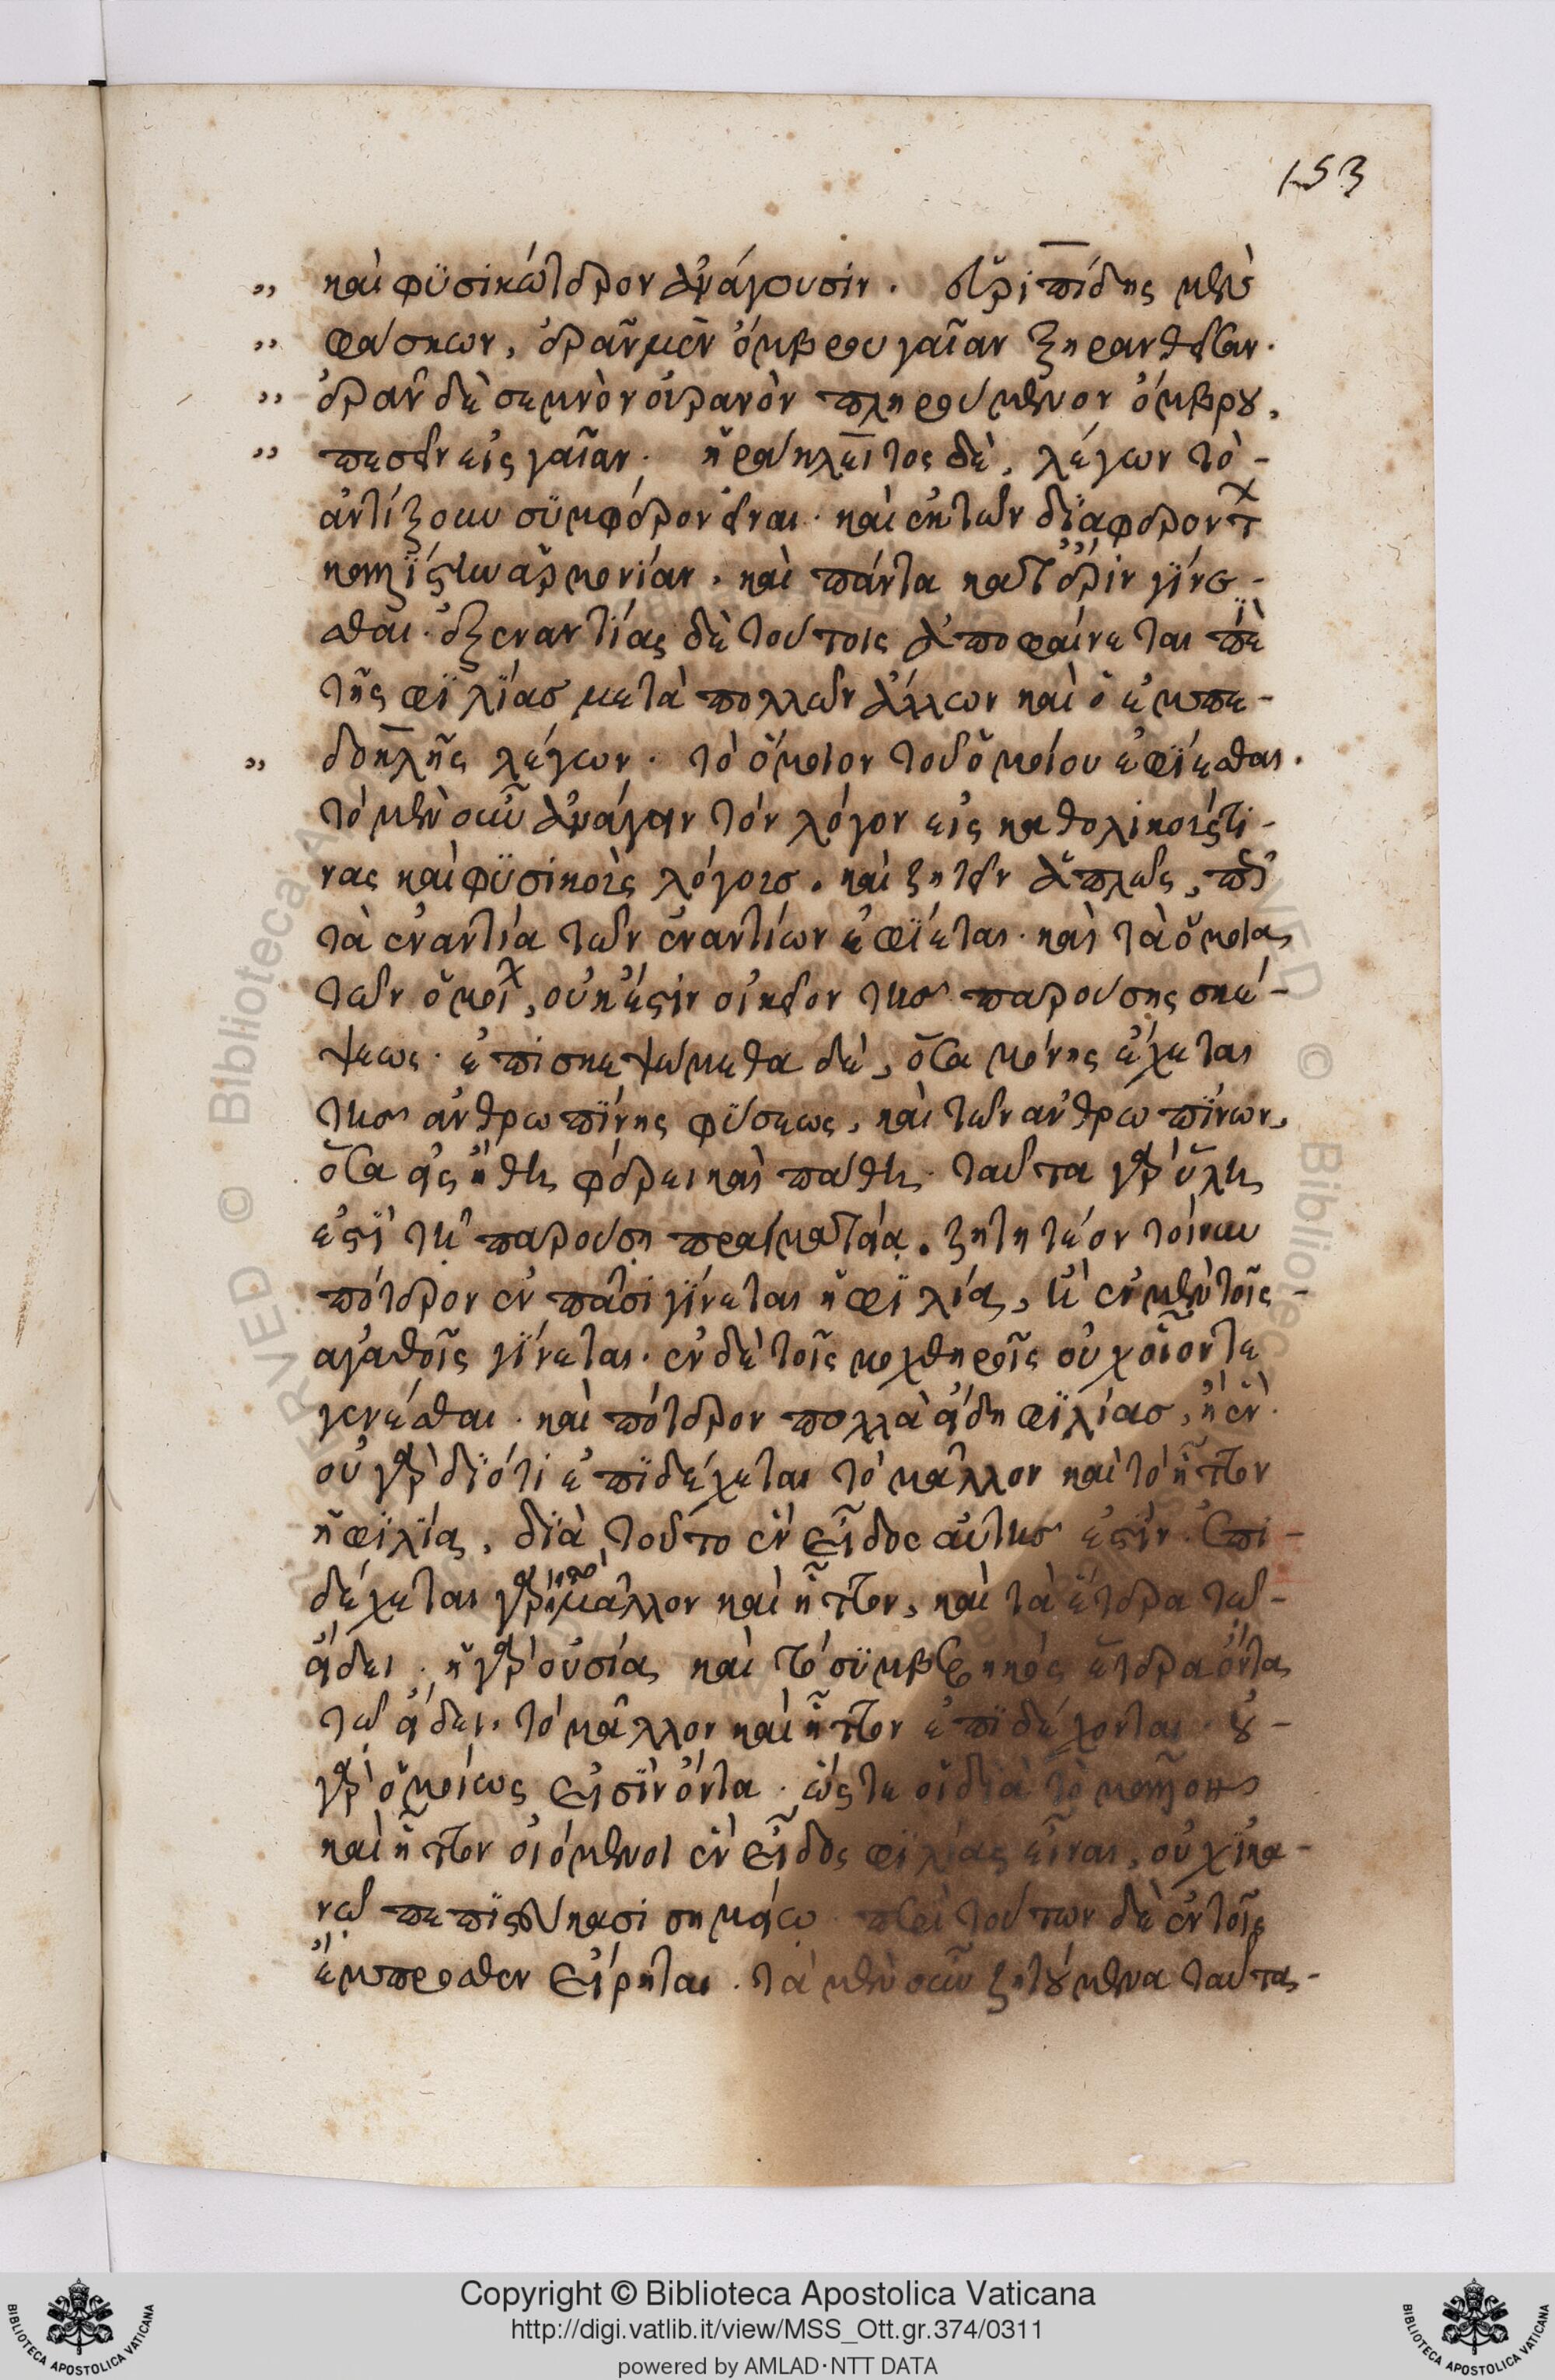 153
„ καὶ φϋσικώτερον ἀνάγουσιν. εὐριπίδης μὲν
„ φάσκων, ἐρᾶν μὲν ὄμβρου γαῖαν ξηρανθεῖσαν.
„ ἐρᾶν δὲ σεμνὸν οὐρανὸν πληρούμενον ὄμβρου,
„ πεσεῖν εἰς γαῖαν. ἡράκλειτος δὲ, λέγων τὸ-
ἀντίξουν σϋμφέρον εἶναι. καὶ ἐκ τῶν δϊαφερόντων
καλλίστην ἁρμονίαν. καὶ πάντα κατ' ἔριν γίνε-
σθαι. ἐξεναντίας δὲ τούτοις ἀποφαίνεται περὶ
τῆς φϊλίας μετὰ πολλῶν ἄλλων καὶ ὁ ἐμπε-
„ δοκλῆς λέγων. τὸ ὅμοιον τοῦ ὁμοίου ἐφΐεσθαι.
τὸ μὲν οὖν ἀνάγειν τὸν λόγον εἰς καθολικούς τι-
νας καὶ φϋσικοὺς λόγους. καὶ ζητεῖν ἁπλῶς, πῶς
τὰ ἐναντία τῶν ἐναντίων ἐφΐεται. καὶ τὰ ὅμοια
τῶν ὁμοίων, οὐκ ἔστιν οἰκεῖον τῆς παρούσης σκέ-
ψεως. ἐπισκεψώμεθα δὲ, ὅσα μόνης ἔχεται
τῆς ἀνθρωπίνης φύσεως, καὶ τῶν ἀνθρωπίνων,
ὅσα εἰς ἤθη φέρει καὶ πάθη. ταῦτα γὰρ ὕλη
ἐστὶ τῇ παρούσῃ πραγματείᾳ. ζητητέον τοίνυν
πότερον ἐν πᾶσι γίνεται ἡ φϊλία, ἢ ἐν μὲν τοῖς-
ἀγαθοῖς γίνεται. ἐν δὲ τοῖς μοχθηροῖς οὐχ οἷόν τε
γενέσθαι. καὶ πότερον πολλὰ εἴδη φϊλίας, ἢ ἕν.
οὐ γὰρ δϊότι ἐπϊδέχεται τὸ μᾶλλον καὶ τὸ ἧττον
ἡ φϊλία, δϊὰ τοῦτο ἓν εἶδος αὐτῆς ἐστίν. ἐπι-
δέχεται γὰρ τὸ μᾶλλον καὶ ἧττον, καὶ τὰ ἕτερα τῶ-
εἴδει. ἡ γὰρ οὐσία καὶ τὸ σϋμβεβηκὸς ἕτερα ὄντα
τῶ εἴδει. τὸ μᾶλλον καὶ ἧττον ἐπϊδέχονται. οὐ-
γὰρ ὁμοίως εἰσὶν ὄντα. ὥστε οἱ διὰ τὸ μᾶλλον
καὶ ἧττον οἰόμενοι ἓν εἶδος φϊλίας εἶναι, οὐχ ἱκα-
νῶ πεπιστεύκασι σημείω. περὶ τούτων δὲ ἐν τοῖς
ἔμπροσθεν εἴρηται. τὰ μὲν οὖν ζητούμενα ταῦτα-
Copyright © Biblioteca Apostolica Vaticana
http://digi.vatlib.it/view/MSS_Ott.gr.374/0311
powered by AMLAD·NTT DATA